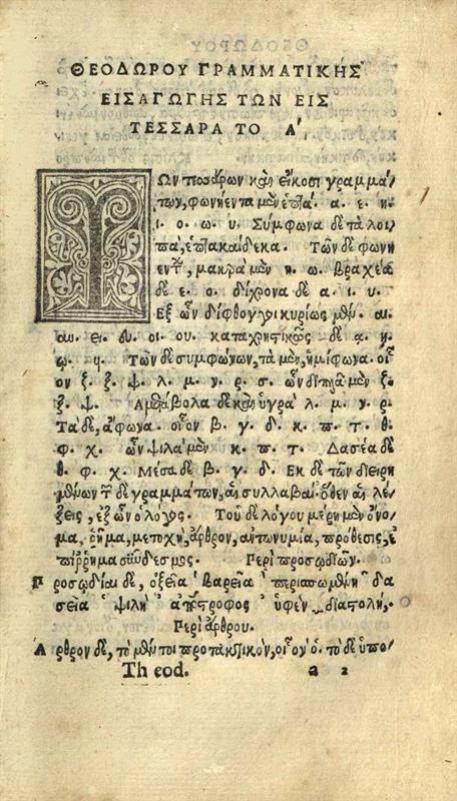 ΘΕΟΔΩΡΟΥ ΓΡΑΜΜΑΤΙΚΗΣ
ΕΙΣΑΓΩΓΗΣ ΤΩΝ ΕΙΣ
ΤΕΣΣΑΡΑ ΤΟ Α'
Των τεσσάρων καὶ εἴκοσι γραμμά
των, φωνήεντα μὲν ἑπτά. α. ε. η.
ι. ο. ω. υ. Σύμφωνα δὲ τὰ λοι
πα, ἑπτακαίδεκα. Τῶν δὲ φωνη
έντων, μακρὰ μὲν η. ω. βραχέα
δὲ ε. ο. δίχρονα δὲ α. ι. υ.
Εξ ὧν δίφθογγοι κυρίως μὲν. αι.
αυ. ει. ευ. οι. ου. καταχρηστικῶς δὲ ᾳ. ῃ.
ῳ. Τῶν δὲ συμφώνων, τὰ μὲν, ἡμίφωνα. οἷ
ον ζ. ξ. ψ. λ. μ. ν. ρ. σ. ὧν διπλᾶ μὲν ζ.
ξ. ψ. Αμετάβολα δὲ καὶ ὑγρὰ λ. μ. ν. ρ.
Τὰ δὲ, ἄφωνα. οἷον β. γ. δ. κ. π. τ. θ.
φ. χ. ὧν ψιλὰ μὲν κ. π. τ. Δασέα δὲ
θ. φ. χ. Μέσα δὲ β. γ. δ. Εκ δὲ τῶν διειρη
μένων τῶν δὲ γραμμάτων, αἱ συλλαβαί. ὅθεν αἱ λέ
ξεις, ἐξ ὧν ὁ λόγος. Τοῦ δὲ λόγου μέρη μὲν ὄνο
μα, ῥῆμα, μετοχὴ, ἄρθρον, αντωνυμία, πρόθεσις, ἐ
πίῤῥημα σύνδεσμος. Περὶ προσωδιῶν.
Προσωδίαι δὲ, ὀξεῖα ΄ βαρεῖα ` περισπωμένη ῀ δα
σεῖα ῾ ψιλὴ ᾿ ἀπόστροφος ’ ὑφὲν ‿ διαστολὴ,
Περὶ ἄρθρου.
Αρθρον δὲ, τὸ μέν τοι προτακτικὸν, οἷον ὁ. τὸ δὲ ὑπο
Theod. a 2